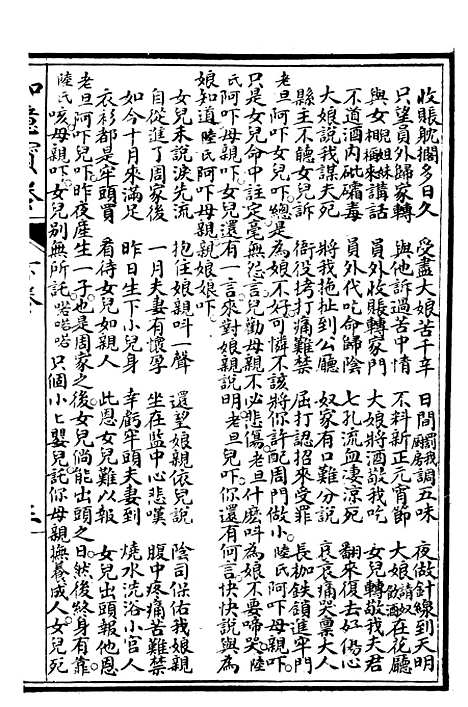 收賬躭擱多日久　受盡大娘苦千辛　日間厨房罰我調五味　夜做針線到天明
只望員外歸家轉　與他訴過苦中情　不料新正元宵節　大娘請奴飲酒在花廳
與女賬姐妹相稱來講話　員外收賬轉家門　大娘將酒敬我吃　女兒轉敬我夫君
不道酒內砒礵毒　員外代吃命歸陰　七孔流血凄凉死　翻來復去好傷心
大娘說我謀夫死　將我拖扯到公廳　奴家有口難分說　哀哀痛哭禀大人
縣主不聽女兒訴　衙役拷打痛難禁　屈打認招來受罪　長枷鉄鎖進牢門
老旦阿吓女兒吓總是為娘不好可憐不該將你許配周門做小陸氏阿吓母親吓
只是女兒命中註定毫無怨言兒勸母親不必悲傷老旦什麽呌為娘不要啼哭陸
氏阿吓母親吓女兒還有一言來對娘親說明老旦兒吓你還有何言快快說與為
娘知道陸氏阿吓母親娘親娘吓
女兒未說淚先流　抱住娘親呌一聲　還望娘親依兒說　陰司保佑我娘親
自從進了周家後　一月夫妻有懷孕　坐在監中心悲嘆　腹中疼痛苦難禁
如今十月來滿足　昨日生下小兒身　幸虧牢頭夫妻到　燒水洗浴小官人
衣衫都是牢頭買　看待女兒如親人　此恩女兒難以報　女兒出頭報他恩
老旦阿吓兒吓昨夜產生一子也是周家之後女兒倘能出頭之日然後終身有靠
陸氏咳母親吓女兒別無所託喏喏喏只個小七嬰兒託你母親撫養成人女兒死
如意寶卷　下卷　三